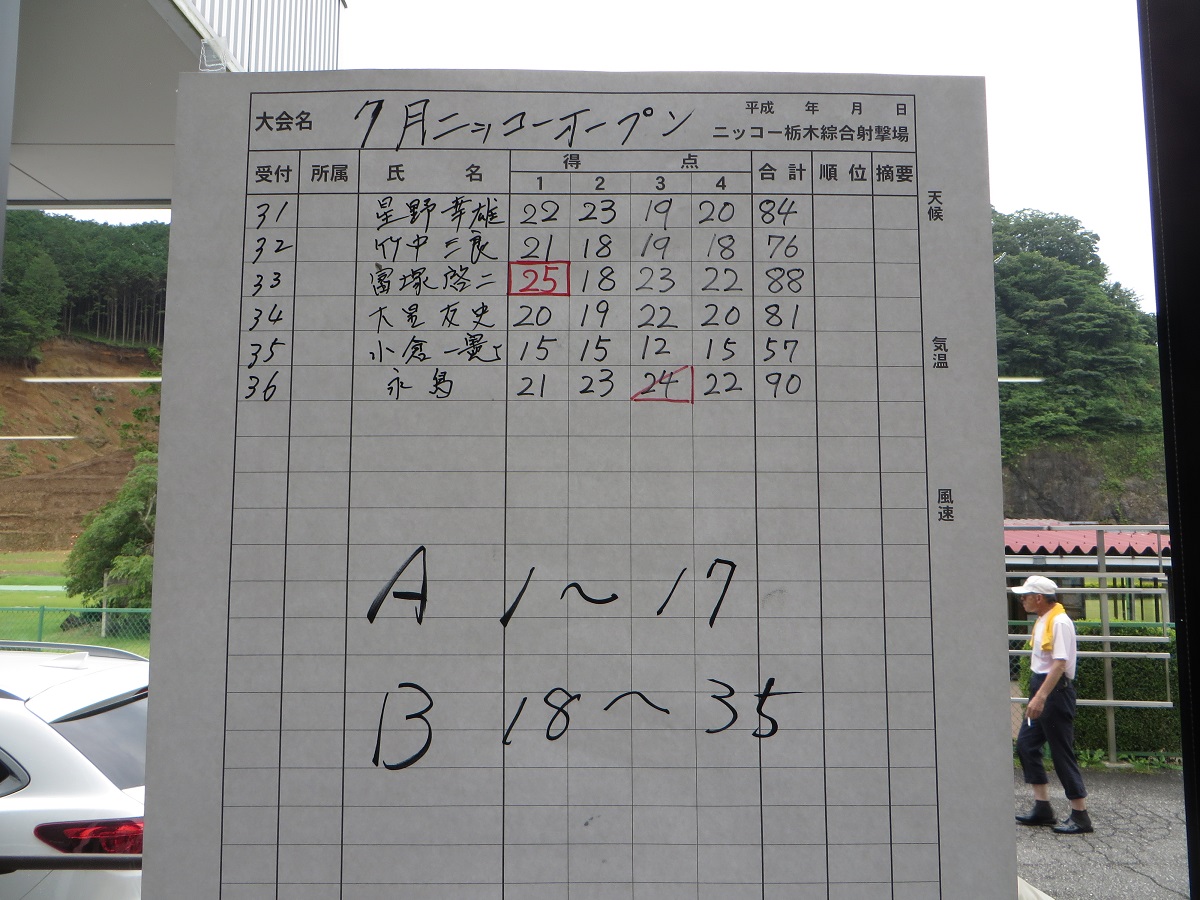 大会名 7月ニッコーオープン 平成 年 月 日
ニッコー栃木綜合射撃場
受付 所属 氏 名 得 点 合計 順位 摘要
1 2 3 4
天候
31 星野幸雄 22 23 19 20 84
32 竹中三良 21 18 19 18 76
33 富塚啓二 25 18 23 22 88
34 大星友史 20 19 22 20 81
気温
35 小倉一 15 15 12 15 57
36 永島 21 23 24 22 90
風速
A 1~17
B 18~35